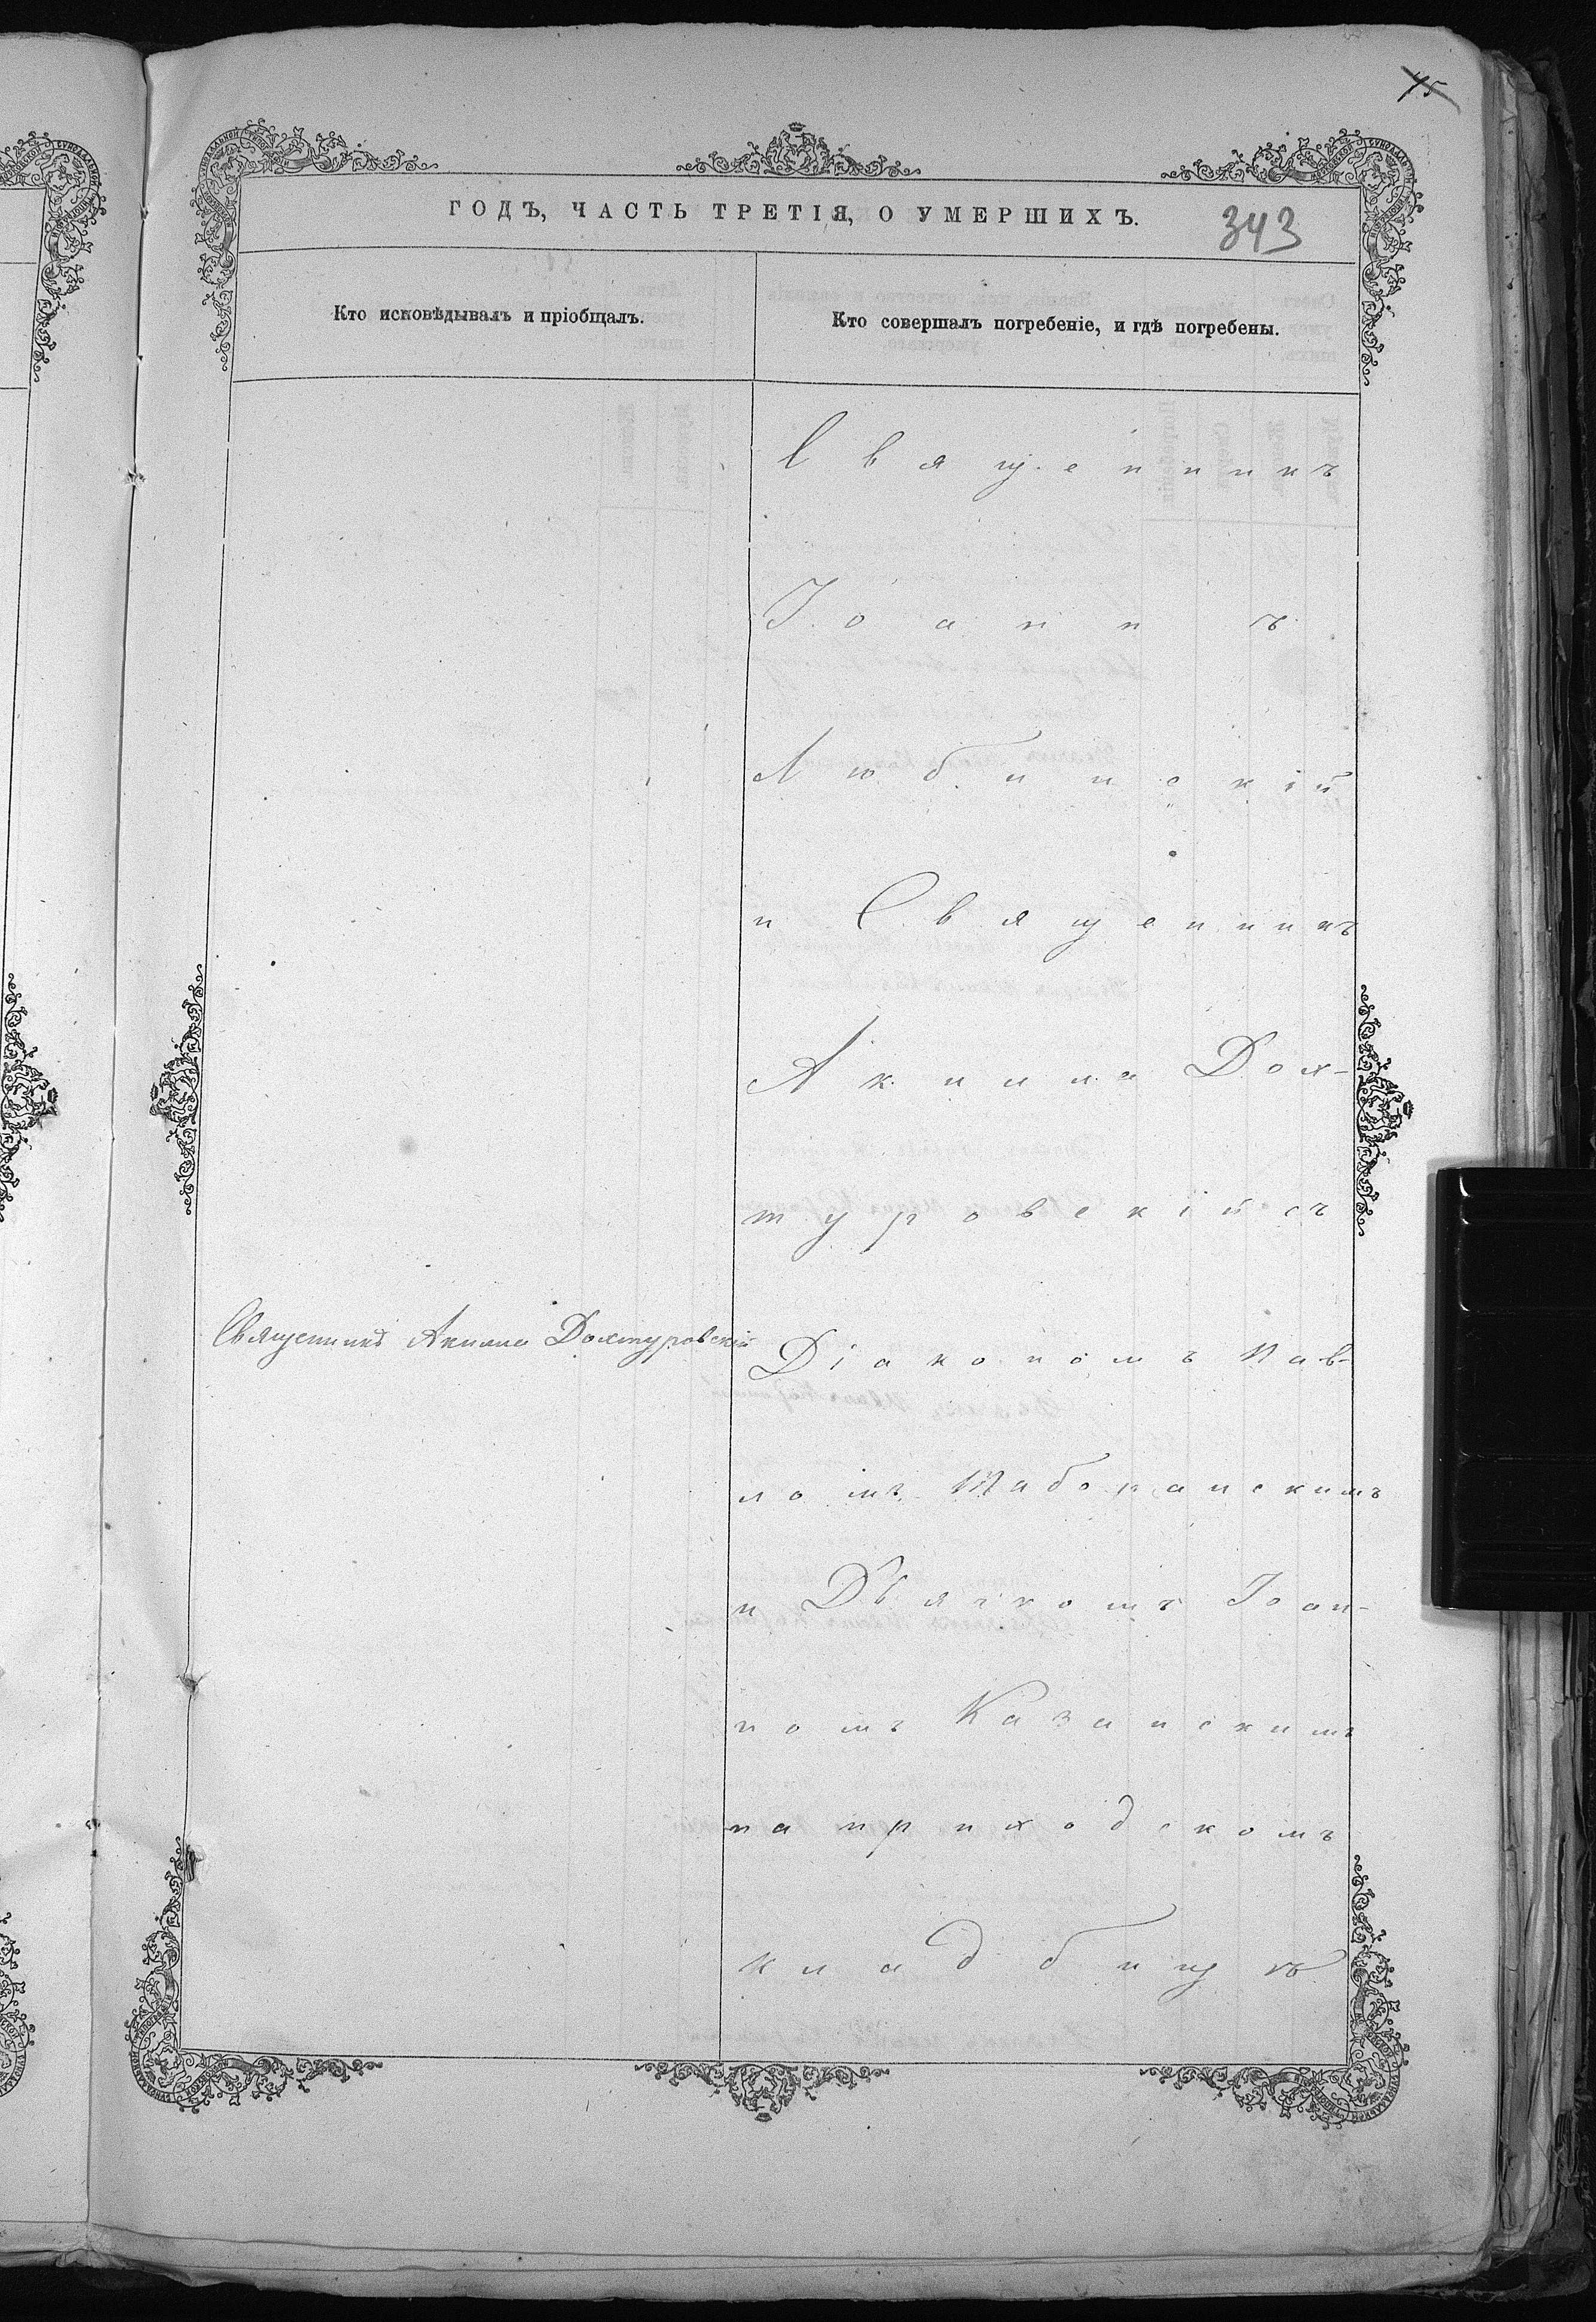 45
ГОДЪ, ЧАСТЬ ТРЕТІЯ, О УМЕРШИХЪ.
343
Кто исповѣдывалъ и пріобщалъ.
Кто совершалъ погребеніе, и гдѣ погребены.
Священникъ
Іоаннъ
Любинскій
и Священникъ
Акила Дох-
туровскійсъ
Священникъ Акила Дохтуровскій
Діакономъ Пав-
ломъ Таборанскимъ
и Дьячкомъ Іоан-
номъ Казанскимъ
на приходскомъ
кладбищѣ